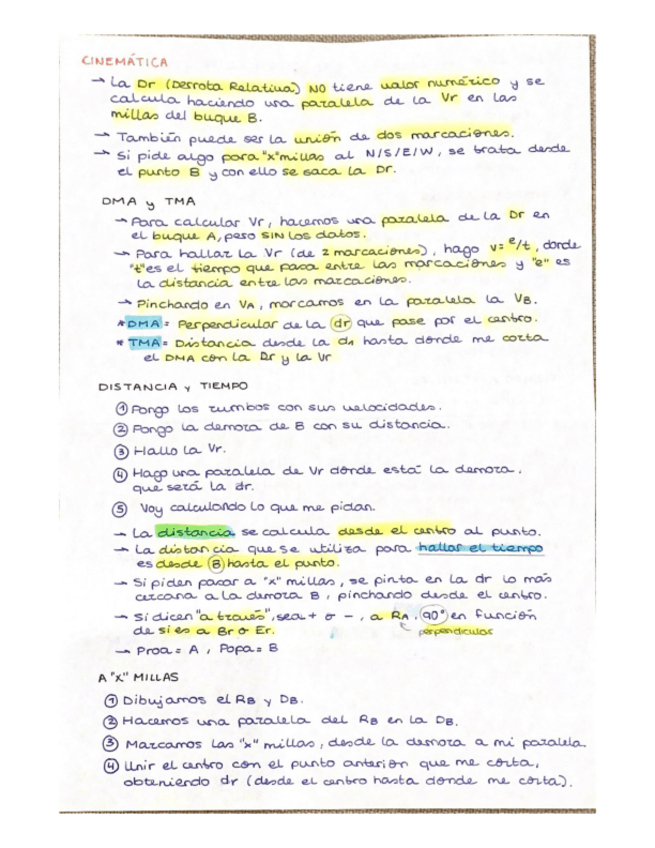 CINEMÁTICA
→ La Dr (Derrota Relativa) NO tiene valor numérico y se
calcula haciendo una paralela de la Vr en las
millas del buque B.
→ También puede ser la unión de dos marcaciones.
→ Si pide algo para "x" millas al N/S/E/W, se trata desde
el punto B y con ello se saca la Dr.
DMA y TMA
→ Para calcular Vr, hacemos una paralela de la Dr en
el buque A, pero SIN los datos.
→ Para hallar la Vr (de 2 marcaciones), hago v=e/t, donde
"t" es el tiempo que pasa entre las marcaciones y "e" es
la distancia entre las marcaciones.
→ Pinchando en VA, marcamos en la paralela la VB.
* DMA = Perpendicular de la dr que pase por el centro.
* TMA = Distancia desde la d1 hasta donde me corta
el DMA con la Dr y la Vr
DISTANCIA y TIEMPO
① Pongo los rumbos con sus velocidades.
② Pongo la demora de B con su distancia.
③ Hallo la Vr.
④ Hago una paralela de Vr donde está la demora,
que será la dr.
⑤ Voy calculando lo que me pidan.
→ La distancia se calcula desde el centro al punto.
→ La distancia que se utiliza para hallar el tiempo
es desde B hasta el punto.
→ Si piden pasar a "x" millas, se pinta en la dr lo más
cercana a la demora B, pinchando desde el centro.
→ Si dicen "a través", sea + o -, a RA, 90° en función
de si es a Br o Er.
perpendicular
→ Proa = A, Popa = B
A "X" MILLAS
① Dibujamos el RB y DB.
② Hacemos una paralela del RB en la DB.
③ Marcamos las "x" millas, desde la demora a mi paralela.
④ Unir el centro con el punto anterior que me corta,
obteniendo dr (desde el centro hasta donde me corta).